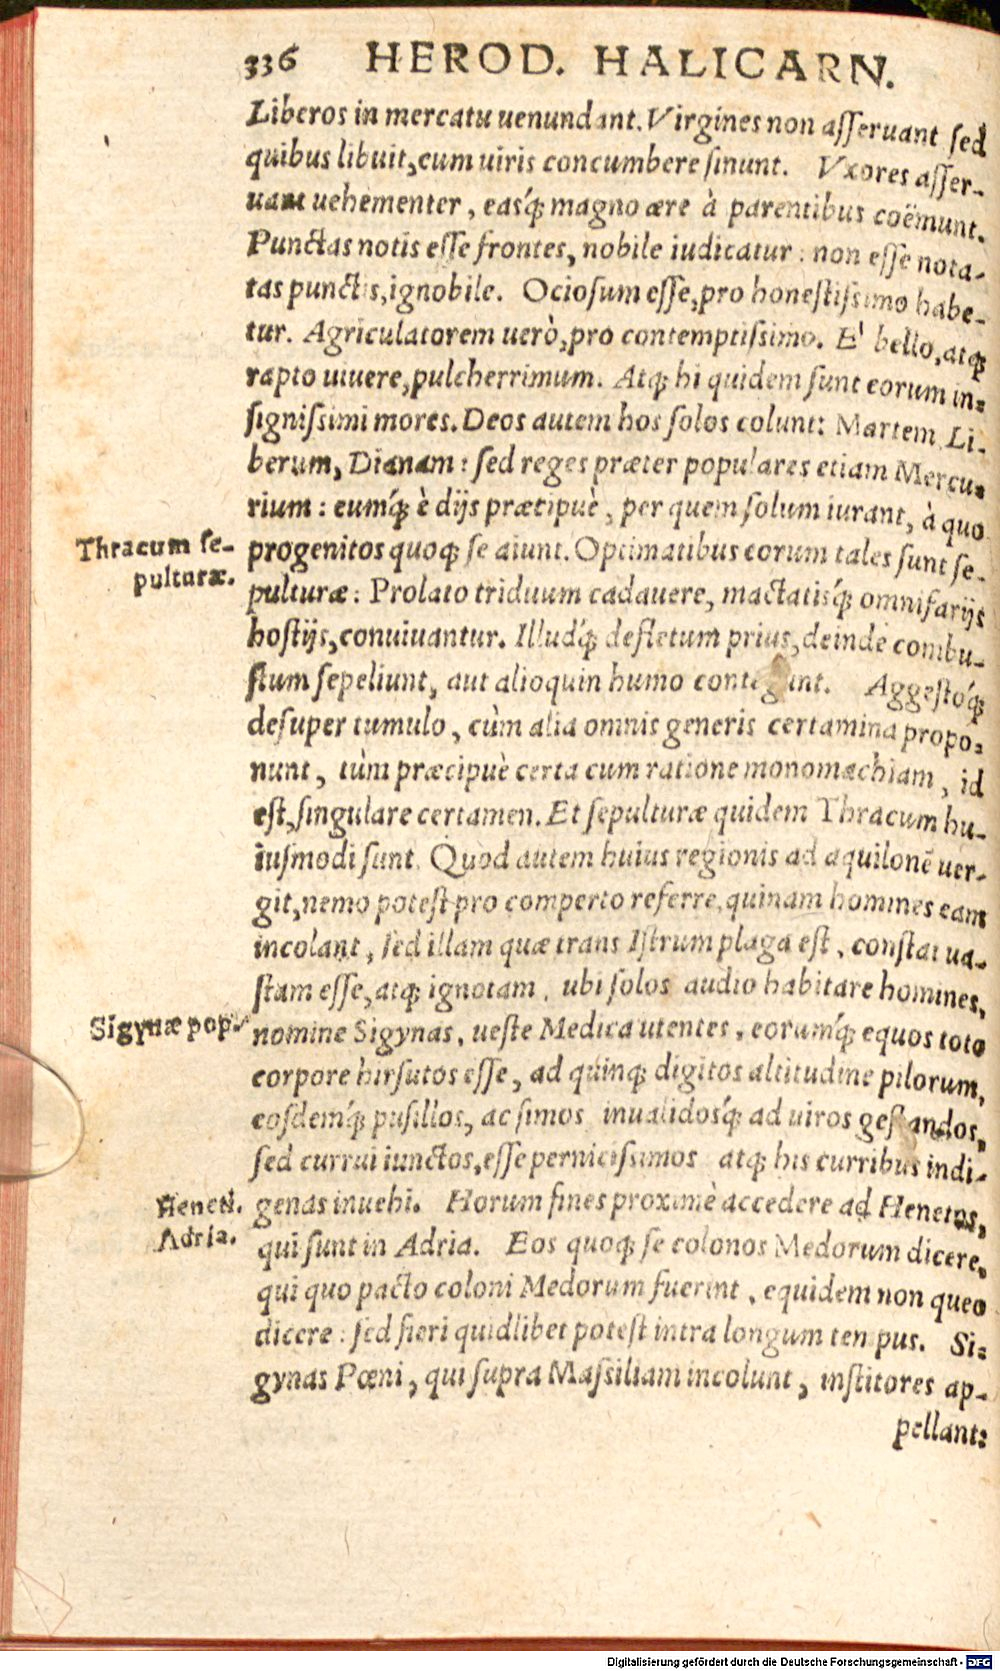 336 HEROD. HALICARN.
Liberos in mercatu uenundant. Virgines non aſſeruant ſed
quibus libuit, cum uiris concumbere ſinunt. Vxores aſſer-
uant uehementer, easq́ꝫ magno ære à parentibus coëmunt.
Punctas notis eſſe frontes, nobile iudicatur: non eſſe nota-
tas punctis, ignobile. Ocioſum eſſe, pro honeſtiſsimo habe-
tur. Agriculatorem uerò, pro contemptiſsimo. E' bello, atqꝫ
rapto uiuere, pulcherrimum. Atqꝫ hi quidem ſunt eorum in-
ſigniſsimi mores. Deos autem hos ſolos colunt: Martem, Li-
berum, Dianam: ſed reges præter populares etiam Mercu-
rium: eumq́ꝫ è dijs præcipuè, per quem ſolum iurant, à quo
Thracum ſe-
pulturæ.
progenitos quoqꝫ ſe aiunt. Optimatibus eorum tales ſunt ſe-
pulturæ: Prolato triduum cadauere, mactatisq́ꝫ omnifarijs
hoſtijs, conuiuantur. Illudq́ꝫ defletum prius, deinde combu-
ſtum ſepeliunt, aut alioquin humo contegunt. Aggeſtoq́ꝫ
deſuper tumulo, cùm alia omnis generis certamina propo-
nunt, tùm præcipuè certa cum ratione monomachiam, id
eſt, ſingulare certamen. Et ſepulturæ quidem Thracum hu-
iuſmodi ſunt. Quod autem huius regionis ad aquilonẽ uer-
git, nemo poteſt pro comperto referre, quinam homines eam
incolant, ſed illam quæ trans Iſtrum plaga eſt, conſtat ua-
ſtam eſſe, atqꝫ ignotam, ubi ſolos audio habitare homines,
Sigynæ pop.
nomine Sigynas, ueſte Medica utentes, eorumq́ꝫ equos toto
corpore hirſutos eſſe, ad quinqꝫ digitos altitudine pilorum,
eoſdemq́ꝫ puſillos, ac ſimos, inualidosq́ꝫ ad uiros geſtandos,
ſed currui iunctos, eſſe perniciſsimos atqꝫ his curribus indi-
Heneti.
Adria.
genas inuehi. Horum fines proximè accedere ad Henetos,
qui ſunt in Adria. Eos quoqꝫ ſe colonos Medorum dicere,
qui quo pacto coloni Medorum fuerint, equidem non queo
dicere: ſed fieri quidlibet poteſt intra longum tempus. Si-
gynas Pœni, qui ſupra Maſsiliam incolunt, inſtitores ap-
pellant:
Digitalisierung gefördert durch die Deutsche Forschungsgemeinschaft - DFG